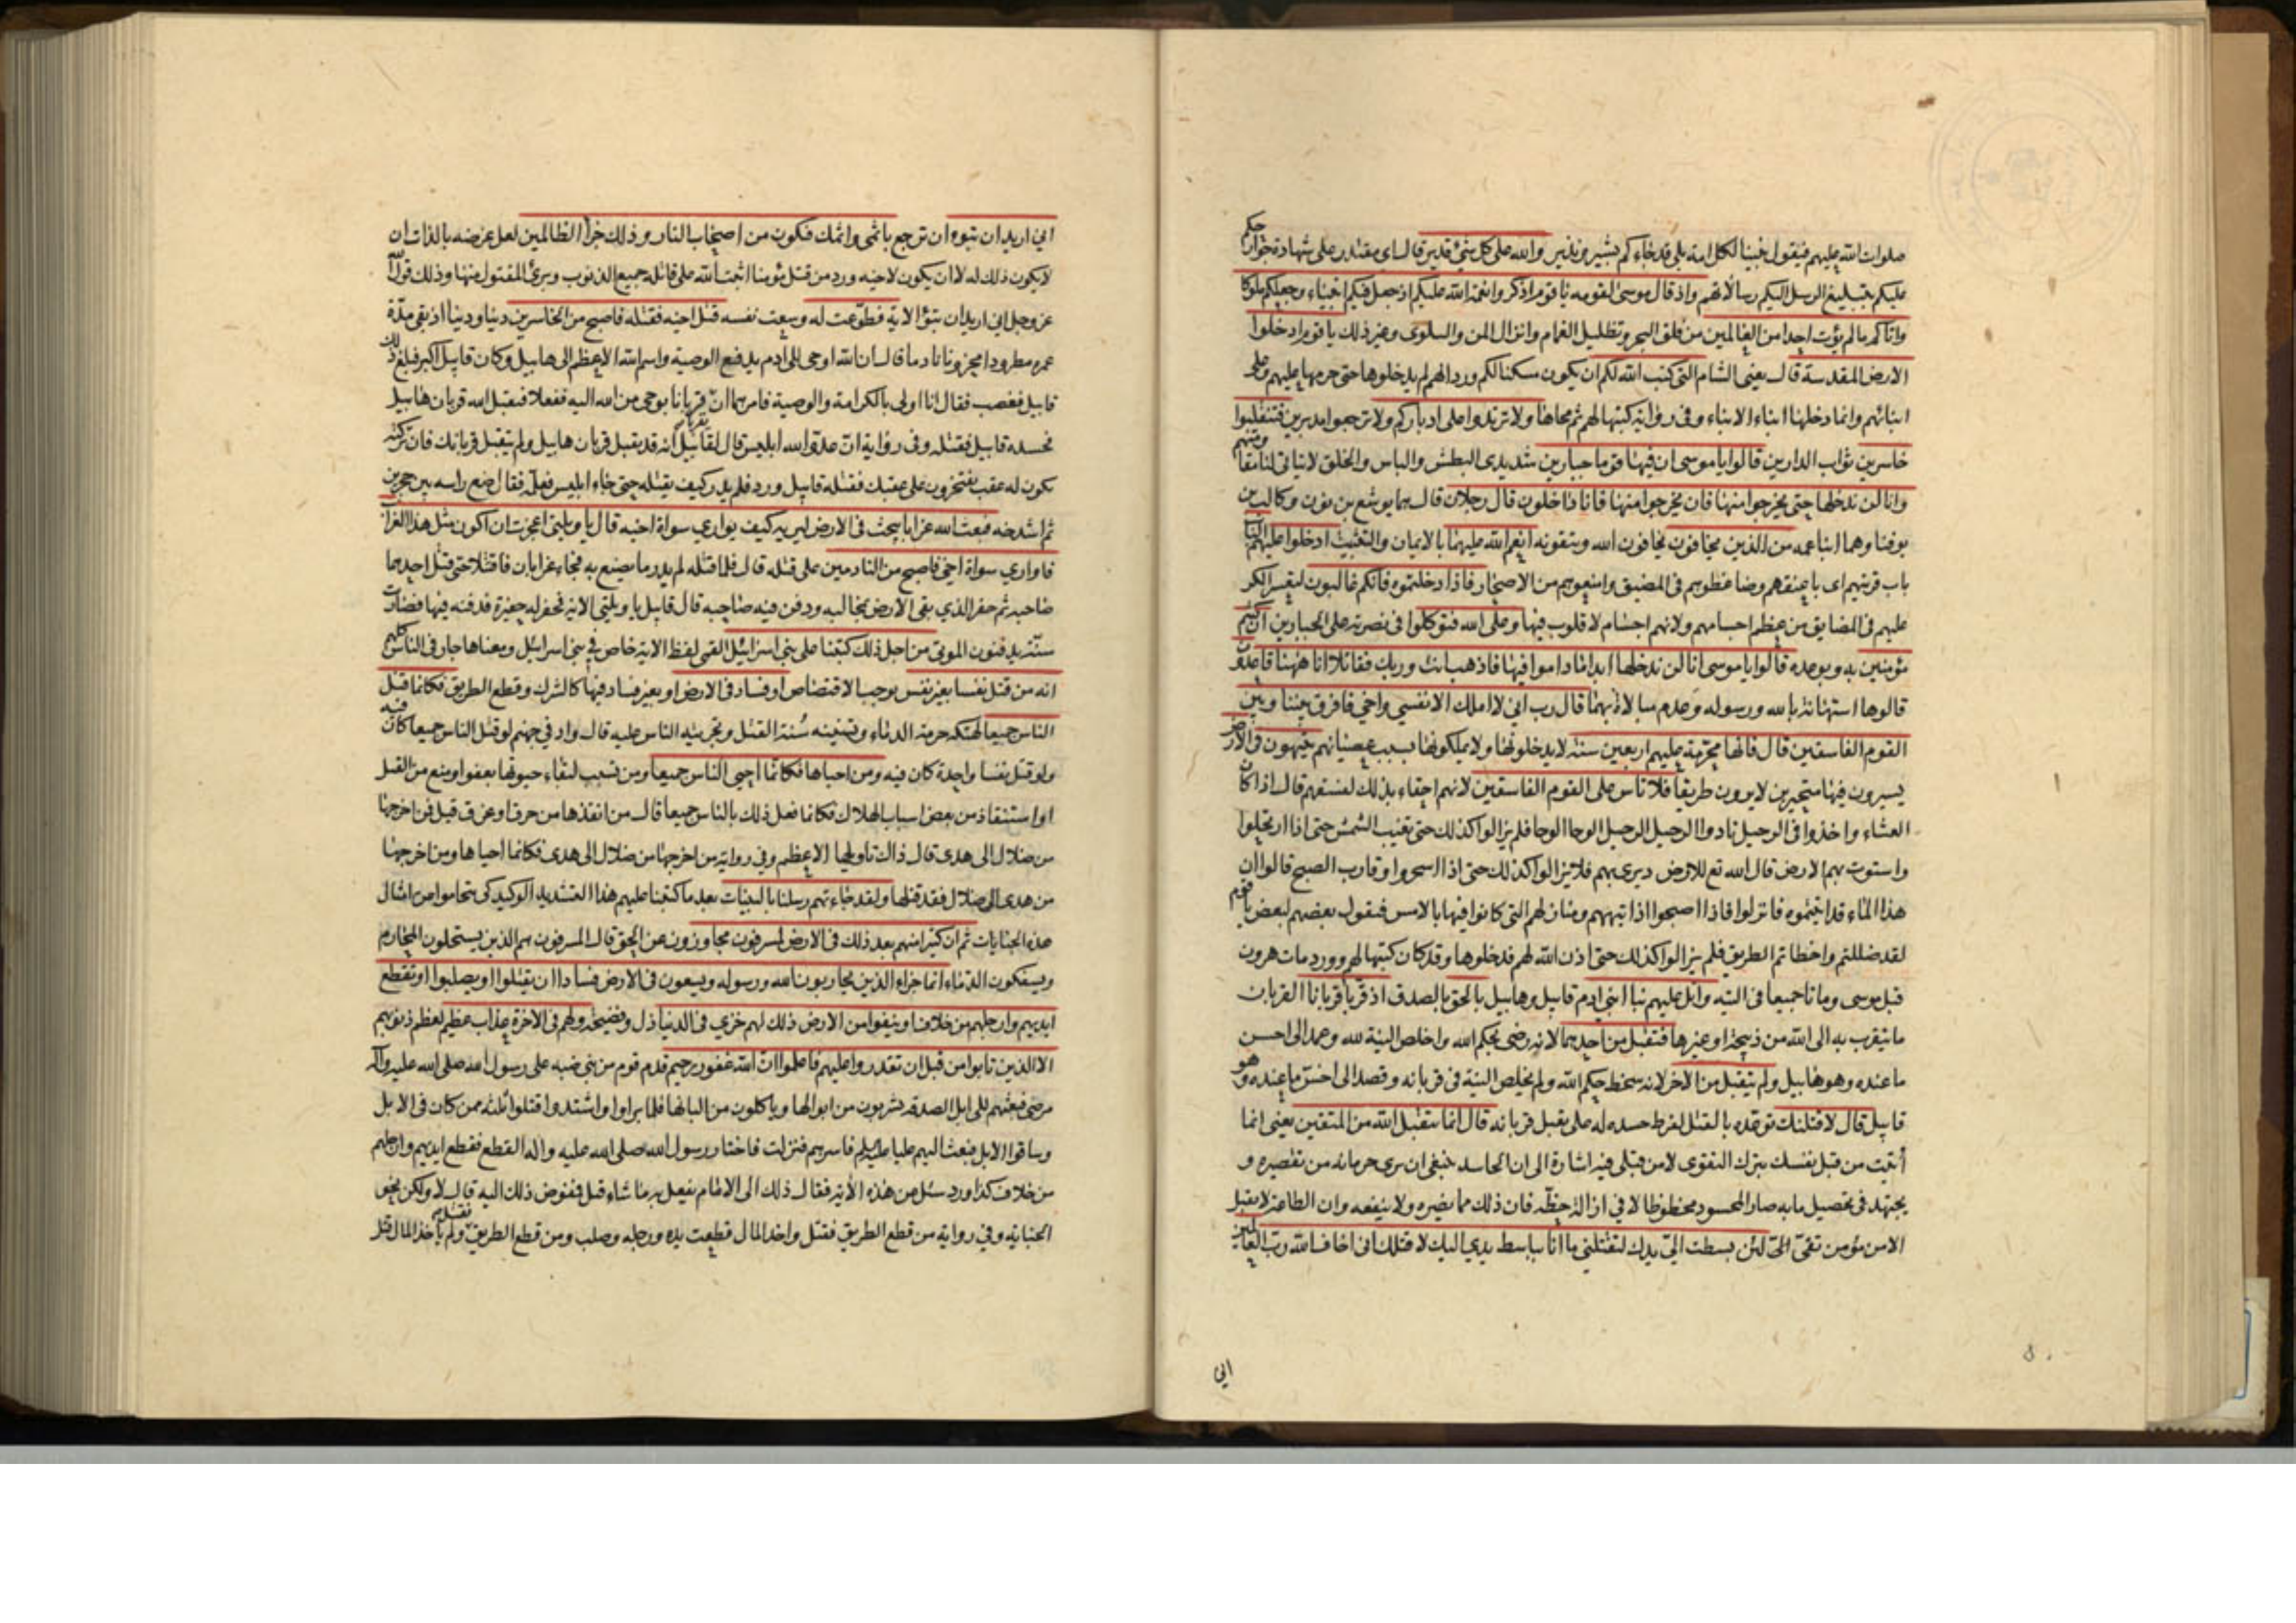 صلوات الله عليهم فيقول نبينا لكل امة بلى قد جاءكم بشير ونذير والله على كل شئ قدير قال اى مقتدر على شهادة جوارحكم
عليكم بتبليغ الرسل اليكم رسالاتهم واذ قال موسى لقومه يا قوم اذكروا نعمة الله عليكم اذ جعل فيكم انبياء وجعلكم ملوكا
واتاكم ما لم يؤت احدا من العالمين من فلق البحر وتظليل الغمام وانزال المن والسلوى وغير ذلك يا قوم ادخلوا
الارض المقدسة قال يعنى الشام التى كتب الله لكم ان يكون مسكنا لكم ورد انهم لم يدخلوها حتى حرمها عليهم وعلى
ابنائهم وانما دخلها ابناء الابناء وفى رواية كتبها لهم ثم محاها ولا ترتدوا على ادباركم ولا ترجعوا مدبرين فتنقلبوا
خاسرين ثواب الدارين قالوا يا موسى ان فيها قوما جبارين شديدى البطش والباس والخلق لا يتاتى لنا مقاومتهم
وانا لن ندخلها حتى يخرجوا منها فان يخرجوا منها فانا داخلون قال رجلان قال هما يوشع بن نون وكالب بن
يوفنا وهما ابنا عمه من الذين يخافون يخافون الله ويتقونه انعم الله عليهما بالايمان والتثبيت ادخلوا عليهم الباب
باب قريتهم اى باغتوهم وضاغطوهم فى المضيق وامنعوهم من الاصحار فاذا دخلتموه فانكم غالبون لتعسر الكر
عليهم فى المضايق من عظم اجسامهم ولانهم اجسام لا قلوب فيها وعلى الله فتوكلوا فى نصرته على الجبارين ان كنتم
مؤمنين به وبوعده قالوا يا موسى انا لن ندخلها ابدا ما داموا فيها فاذهب انت وربك فقاتلا انا ههنا قاعدون
قالوها استهانة بالله ورسوله وعدم مبالاة بهما قال رب انى لا املك الا نفسي واخي فافرق بيننا وبين
القوم الفاسقين قال فانها محرمة عليهم اربعين سنة لا يدخلونها ولا يملكونها بسبب عصيانهم يتيهون فى الارض
يسيرون فيها متحيرين لا يرون طريقا فلا تاس على القوم الفاسقين لانهم احقاء بذلك لفسقهم قال اذا كان
العشاء واخذوا فى الرحيل نادوا الرحيل الرحيل الوحا الوحا فلم يزالوا كذلك حتى تغيب الشمس حتى اذا ارتحلوا
واستوت بهم الارض قال الله تع للارض ديرى بهم فلا يزالوا كذلك حتى اذا اسحروا وقارب الصبح قالوا ان
هذا الماء قد اتيتموه فانزلوا فاذا اصبحوا اذا تيههم ومنازلهم التى كانوا فيها بالامس فيقول بعضهم لبعض يا قوم
لقد ضللتم واخطاتم الطريق فلم يزالوا كذلك حتى اذن الله لهم فدخلوها وقد كان كتبها لهم وورد مات هرون
قبل موسى وماتا جميعا فى التيه واتل عليهم نبأ ابنى ادم قابيل وهابيل بالحق بالصدق اذ قربا قربانا القربان
ما يتقرب به الى الله من ذبيحة او غيرها فتقبل من احدهما لانه رضى بحكم الله واخلص النية لله وعمد الى احسن
ما عنده وهو هابيل ولم يتقبل من الاخر لانه سخط حكم الله ولم يخلص النية فى قربانه وقصد الى اخس ما عنده وهو
قابيل قال لاقتلنك توعده بالقتل لفرط حسده له على تقبل قربانه قال انما يتقبل الله من المتقين يعنى انما
أتيت من قبل نفسك بترك التقوى لا من قبلى فيه اشارة الى ان الحاسد ينبغى ان يرى حرمانه من تقصيره و
يجتهد فى تحصيل ما به صار المحسود محظوظا لا فى ازالة حظه فان ذلك مما يضره ولا ينفعه وان الطاعة لا تقبل
الا من مؤمن تقى لئن بسطت الى يدك لتقتلنى ما انا بباسط يدى اليك لاقتلك انى اخاف الله رب العالمين
انى
انى اريد ان تبوء ان ترجع باثمى واثمك فتكون من اصحاب النار وذلك جزاء الظالمين لعل غرضه بالذات ان
لا يكون ذلك له لا ان يكون لاخيه ورد من قتل مؤمنا اثبت الله على قاتله جميع الذنوب وبرئ المقتول منها وذلك قول الله
عز وجل انى اريد ان تبوء الاية فطوعت له وسعت نفسه قتل اخيه فقتله فاصبح من الخاسرين دينا ودنيا اذ بقى مدة
عمره مطرودا محزونا نادما قال ان الله اوحى الى ادم يدفع الوصية واسم الله الاعظم الى هابيل وكان قابيل اكبر فبلغ ذلك
قابيل فغضب فقال انا اولى بالكرامة والوصية فامرهما ان يقربا قربانا بوحى من الله اليه ففعلا فتقبل الله قربان هابيل
فحسده قابيل فقتله وفى رواية ان عدو الله ابليس قال لقابيل انه قد يقبل قربان هابيل ولم يتقبل قربانك فان تركته
يكون له عقب يفتخرون على عقبك فقتله قابيل ورد فلم يدر كيف يقتله حتى جاء ابليس فعلمه فقال ضع راسه بين حجرين
ثم اشدخه فبعث الله غرابا يبحث فى الارض ليريه كيف يوارى سواة اخيه قال يا ويلتى اعجزت ان اكون مثل هذا الغراب
فاوارى سواة اخى فاصبح من النادمين على قتله قال فلما قتله لم يدر ما يصنع به فجاء غرابان فاقتتلا حتى قتل احدهما
صاحبه ثم حفر الذى بقى الارض بمخالبه ودفن فيه صاحبه قال قابيل يا ويلتى الاية فحفر له حفيرة فدفنه فيها فصارت
سنة يدفنون الموتى من اجل ذلك كتبنا على بنى اسرائيل القمى لفظ الاية خاص فى بنى اسرائيل ومعناها جار فى الناس كلهم
انه من قتل نفسا بغير نفس يوجب الاقتصاص او فساد فى الارض او بغير فساد فيها كالشرك وقطع الطريق فكانما قتل
الناس جميعا لهتكه حرمة الدماء وتسنينه سنة القتل وتجرئته الناس عليه قال واد فى جهنم لو قتل الناس جميعا كان فيه
ولو قتل نفسا واحدة كان فيه ومن احياها فكانما احيى الناس جميعا ومن تسبب لبقاء حيوتها بعفو او منع من القتل
او استنقاذ من بعض اسباب الهلاك فكانما فعل ذلك بالناس جميعا قال من انقذها من حرق او غرق قيل فمن اخرجها
من ضلال الى هدى قال ذاك تاويلها الاعظم وفى رواية من اخرجها من ضلال الى هدى فكانما احياها ومن اخرجها
من هدى الى ضلال فقد قتلها ولقد جاءتهم رسلنا بالبينات بعد ما كتبنا عليهم هذا التشديد الوكيد كى يتحاموا عن امثال
هذه الجنايات ثم ان كثيرا منهم بعد ذلك فى الارض لمسرفون مجاوزون عن الحق قال المسرفون هم الذين يستحلون المحارم
ويسفكون الدماء انما جزاء الذين يحاربون الله ورسوله ويسعون فى الارض فسادا ان يقتلوا او يصلبوا او تقطع
ايديهم وارجلهم من خلاف او ينفوا من الارض ذلك لهم خزى فى الدنيا ذل وفضيحة ولهم فى الاخرة عذاب عظيم لعظم ذنوبهم
الا الذين تابوا من قبل ان تقدروا عليهم فاعلموا ان الله غفور رحيم قدم قوم من بنى ضبه على رسول الله صلى الله عليه واله
مرضى فبعثهم الى ابل الصدقة يشربون من ابوالها وياكلون من البانها فلما براوا واشتدوا قتلوا ثلثه ممن كان فى الابل
وساقوا الابل فبعث اليهم عليا عليه السلم فاسرهم فنزلت فاختار رسول الله صلى الله عليه واله القطع فقطع ايديهم وارجلهم
من خلاف كذا ورد سئل عن هذه الاية فقال ذلك الى الامام يفعل به ما شاء قيل ففوض ذلك اليه قال لا ولكن بحق
الجناية وفى رواية من قطع الطريق فقتل واخذ المال قطعت يده ورجله وصلب ومن قطع الطريق فقتل ولم ياخذ المال قتل